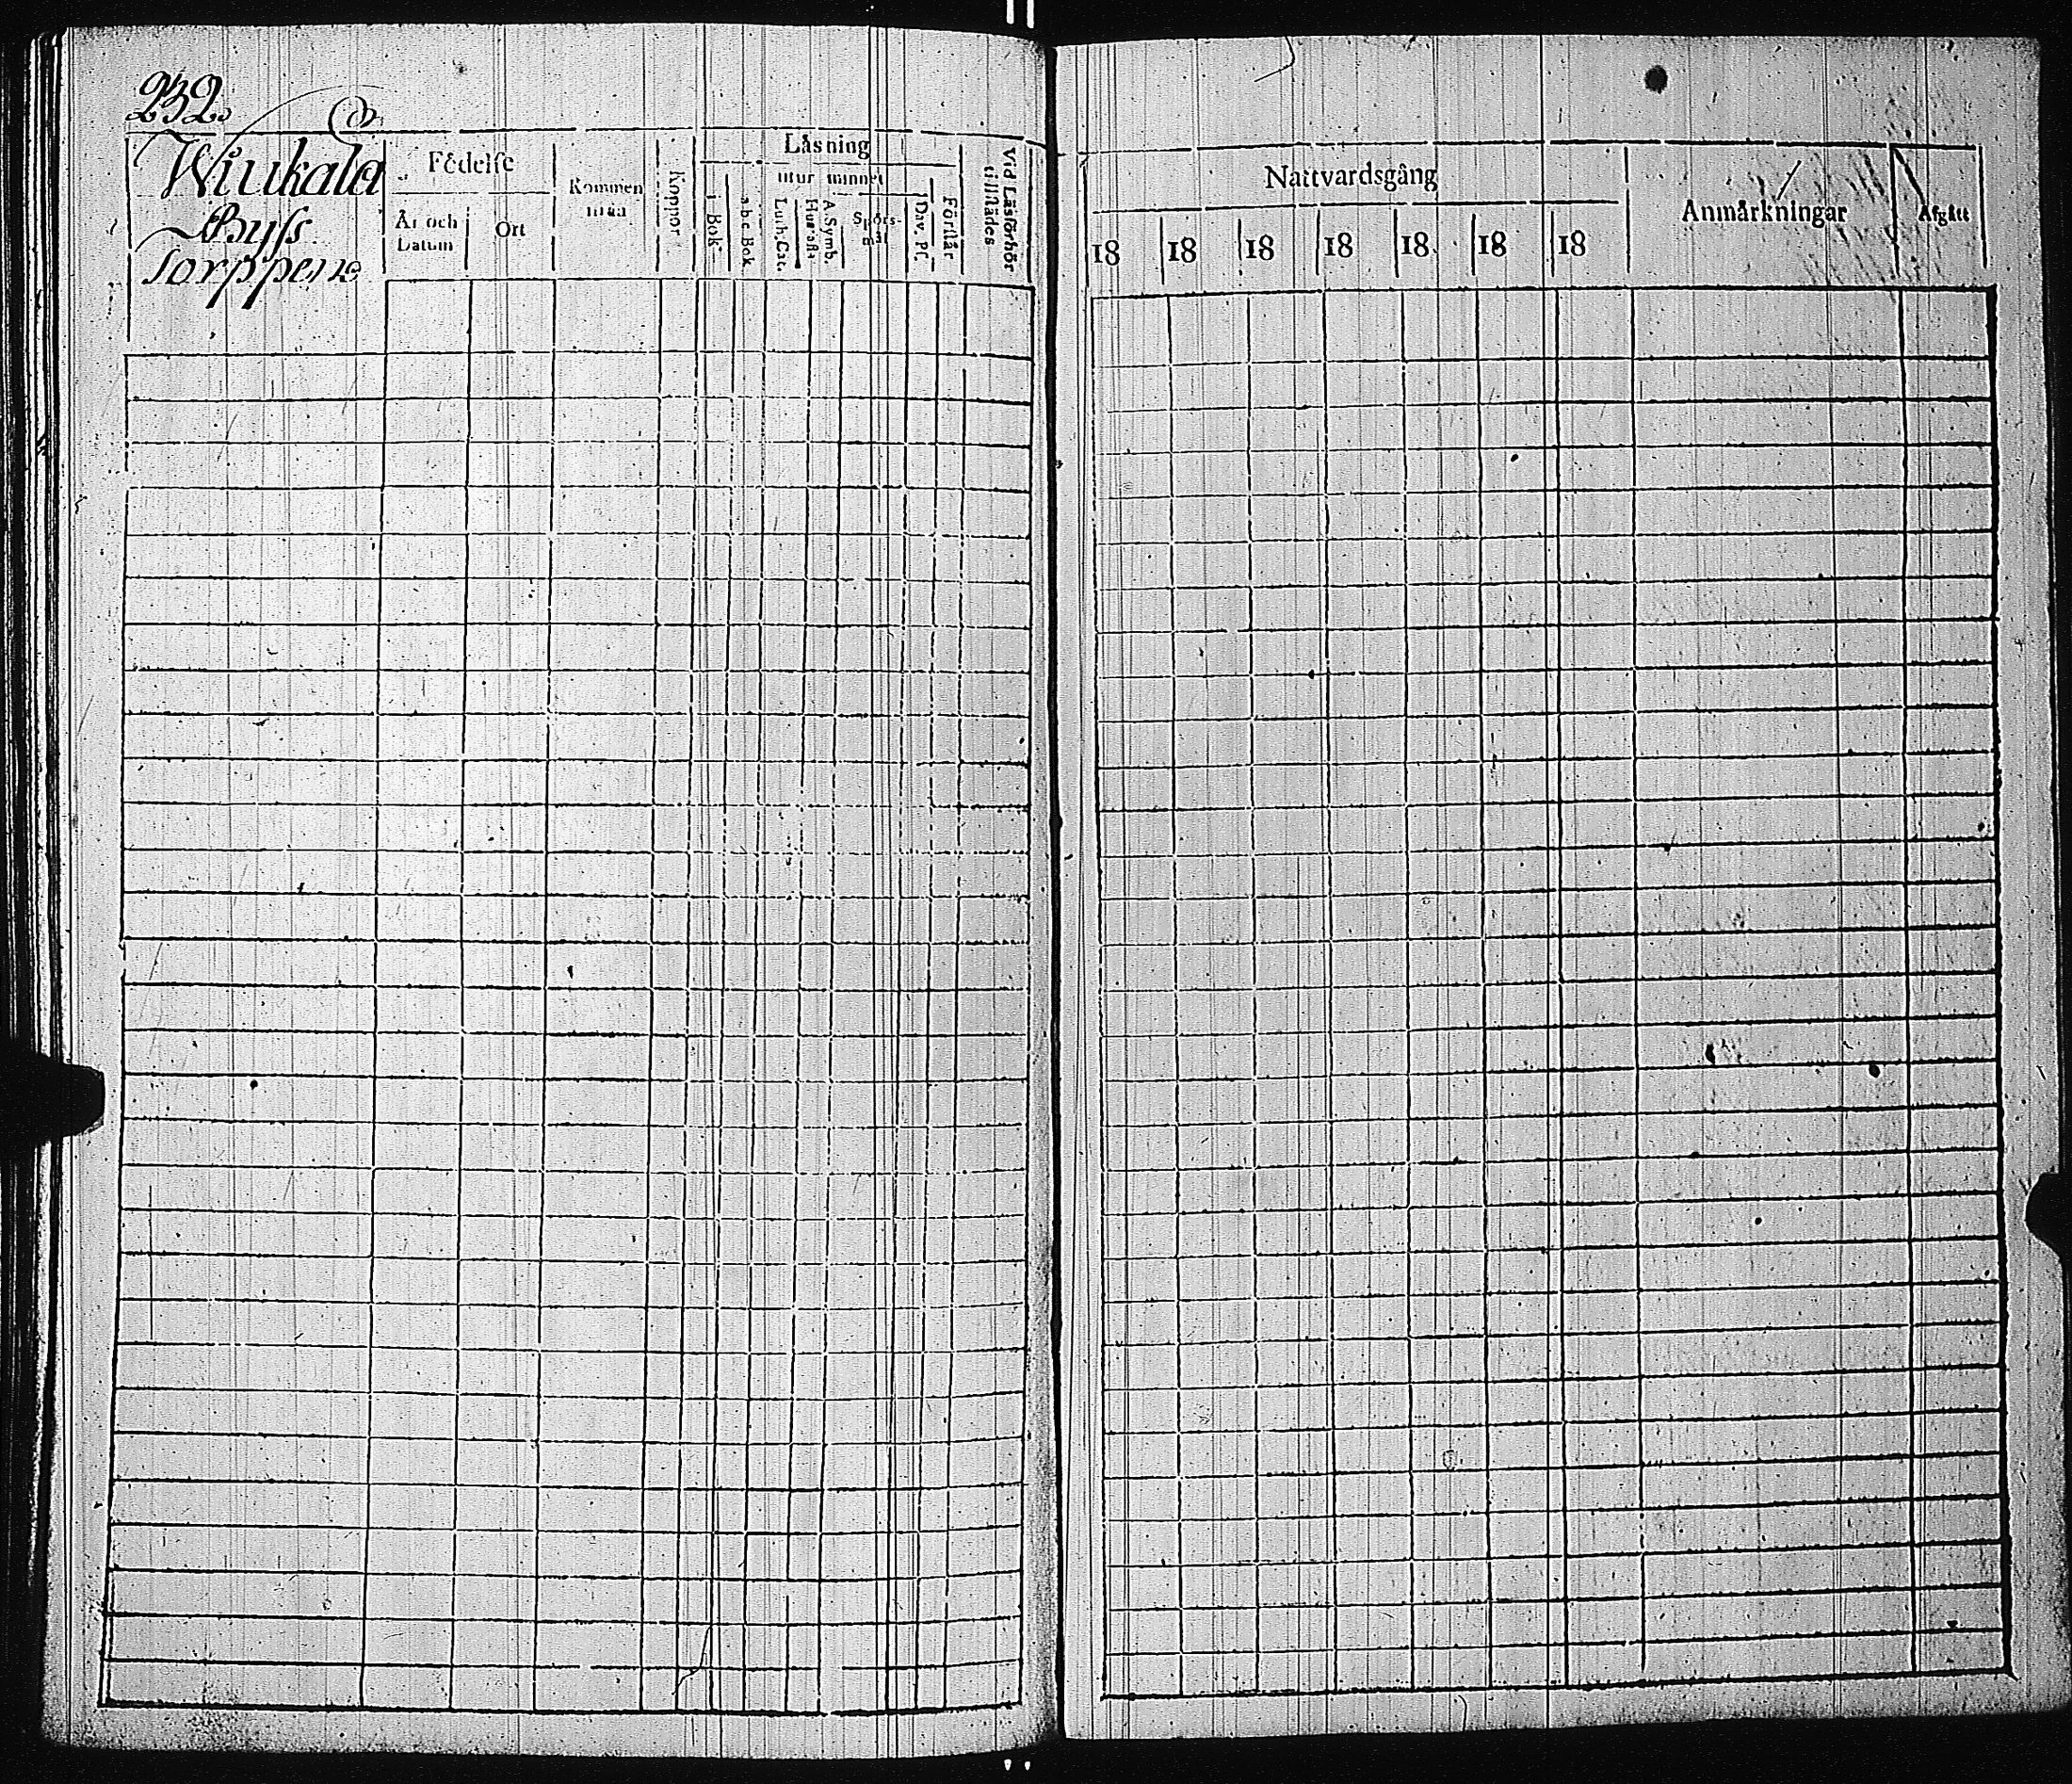 232.
Wiukala
Byss
Torppene
Födelse
År och Datum
Ort
Kommen ifrån
Koppor
Läsning
i Bok
utur minnet
a.b.c.Bok
Luth.Cat.
Hustafla
A.Symb.
Spörs-mål
Dav. Ps.
Förstår
Vid Läsförhör tillstädes
Nattvardsgång
18 18 18 18 18 18 18
Anmärkningar
Afgått